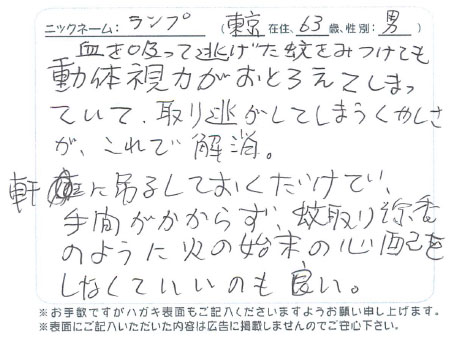 ニックネーム：ランプ（東京在住、63歳、性別：男）
血を吸って逃げた蚊をみつけても
動体視力がおとろえてしまっ
ていて、取り逃がしてしまうくやしさ
が、これで解消。
軒に吊るしておくだけで、
手間がかからず、蚊取り線香
のように火の始末の心配を
しなくていいのも良い。
※お手数ですがハガキ表面もご記入くださいますようお願い申し上げます。
※表面にご記入いただいた内容は広告に掲載しませんのでご安心下さい。